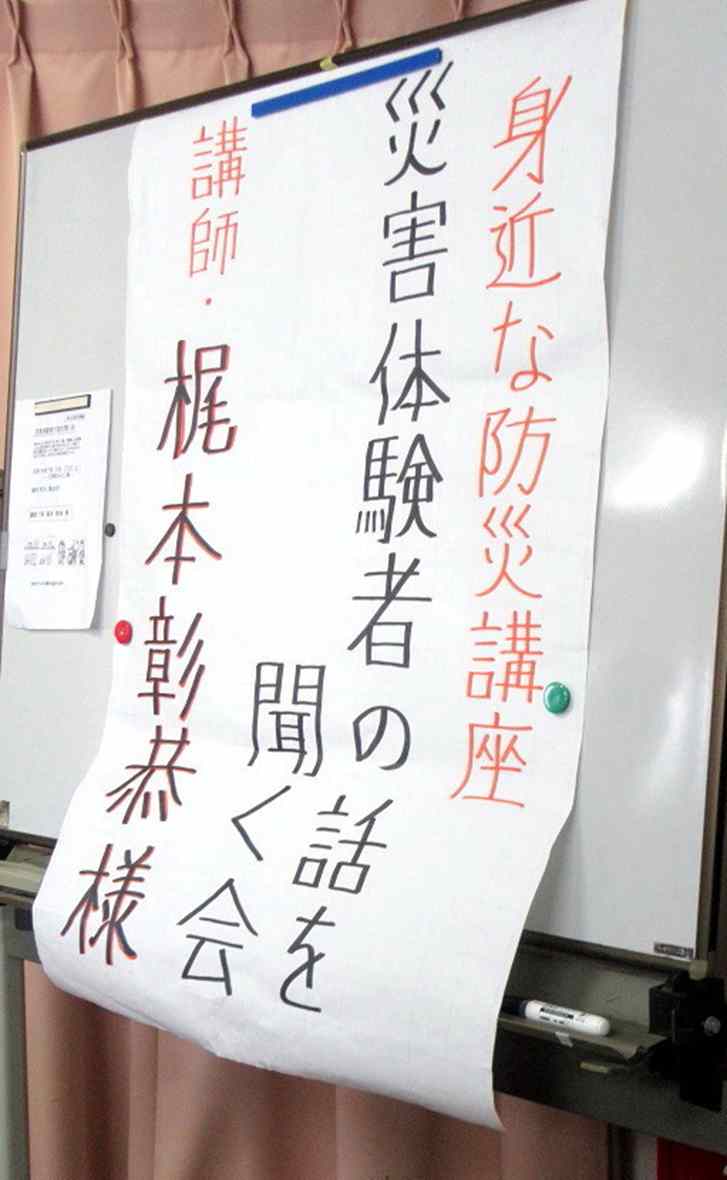 身近な防災講座
災害体験者の話を
聞く会
講師・梶本彰恭様